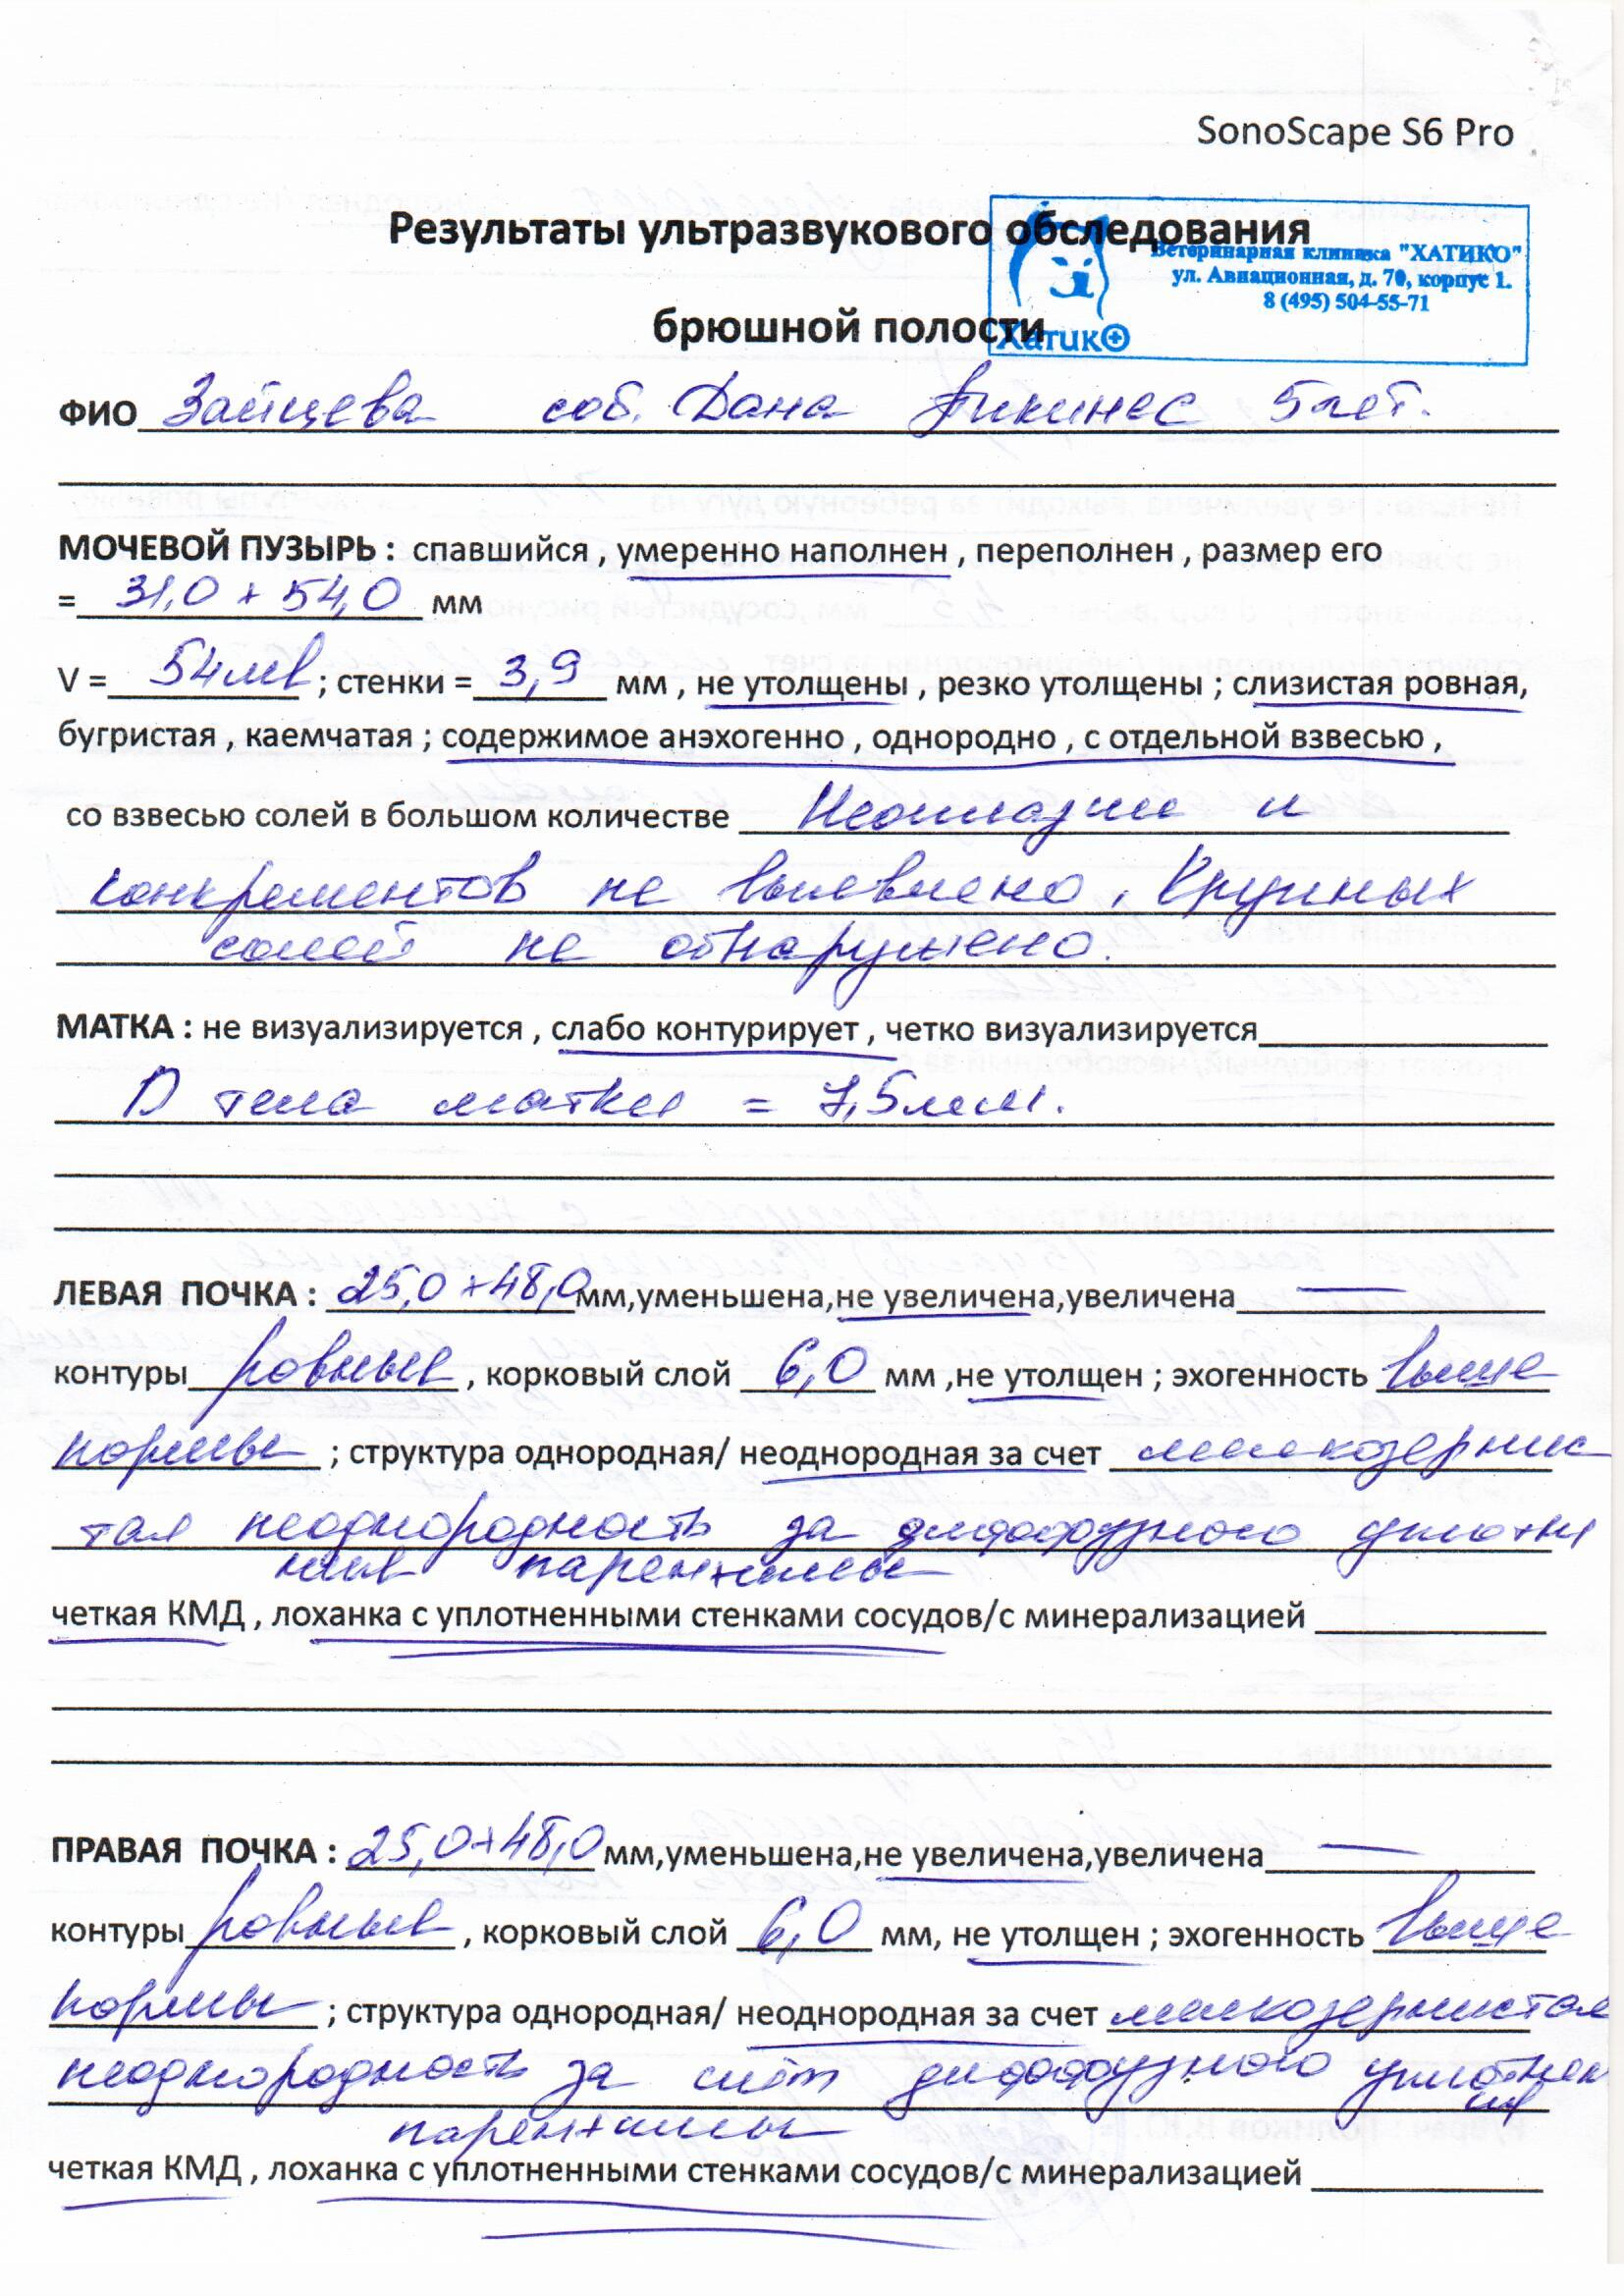 SonoScape S6 Pro
Результаты ультразвукового обследования
брюшной полости
Ветеринарная клиника "ХАТИКО"
ул. Авиационная, д. 70, корпус 1.
8 (495) 504-55-71
Хатико
ФИО Зайцева соб. Дана Пикинес 5 лет.
МОЧЕВОЙ ПУЗЫРЬ : спавшийся , умеренно наполнен , переполнен , размер его
= 31,0 × 54,0 мм
V = 54мл ; стенки = 3,9 мм , не утолщены , резко утолщены ; слизистая ровная,
бугристая , каемчатая ; содержимое анэхогенно , однородно , с отдельной взвесью ,
со взвесью солей в большом количестве Неоплазии и
конкрементов не выявлено. Крупных
солей не обнаружено.
МАТКА : не визуализируется , слабо контурирует , четко визуализируется
D тела матки = 7,5мм.
ЛЕВАЯ ПОЧКА : 25,0×48,0 мм,уменьшена,не увеличена,увеличена —
контуры ровные , корковый слой 6,0 мм ,не утолщен ; эхогенность выше
нормы ; структура однородная/ неоднородная за счет мелкозернис
тая неоднородность за диффузного уплотне
ния паренхимы
четкая КМД , лоханка с уплотненными стенками сосудов/с минерализацией
ПРАВАЯ ПОЧКА : 25,0×48,0 мм,уменьшена,не увеличена,увеличена —
контуры ровные , корковый слой 6,0 мм, не утолщен ; эхогенность выше
нормы ; структура однородная/ неоднородная за счет мелкозернистая
неоднородность за счёт диффузного уплотнен
ия
паренхимы
четкая КМД , лоханка с уплотненными стенками сосудов/с минерализацией